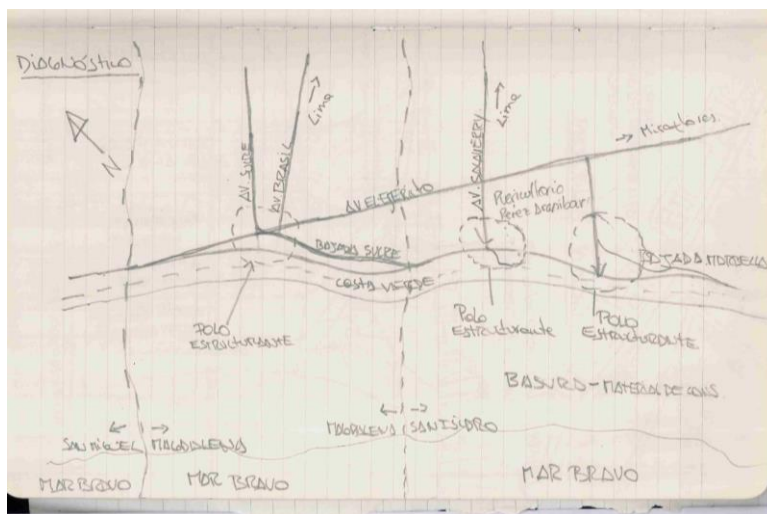 DIAGNÓSTICO
N
AV. SUCRE
AV BRASIL
Lima
AV. SALAVERRY
Lima
→ Miraflores.
AV EJERCITO
Puericultorio
Pérez Aranibar
BAJADA SUCRE
COSTA VERDE
POLO
ESTRUCTURANTE
Polo
Estructurante
POLO
ESTRUCTURANTE
BASURA - MATERIAL DE CONS.
SAN MIGUEL
MAGDALENA
MAGDALENA
SAN ISIDRO
MAR BRAVO
MAR BRAVO
MAR BRAVO